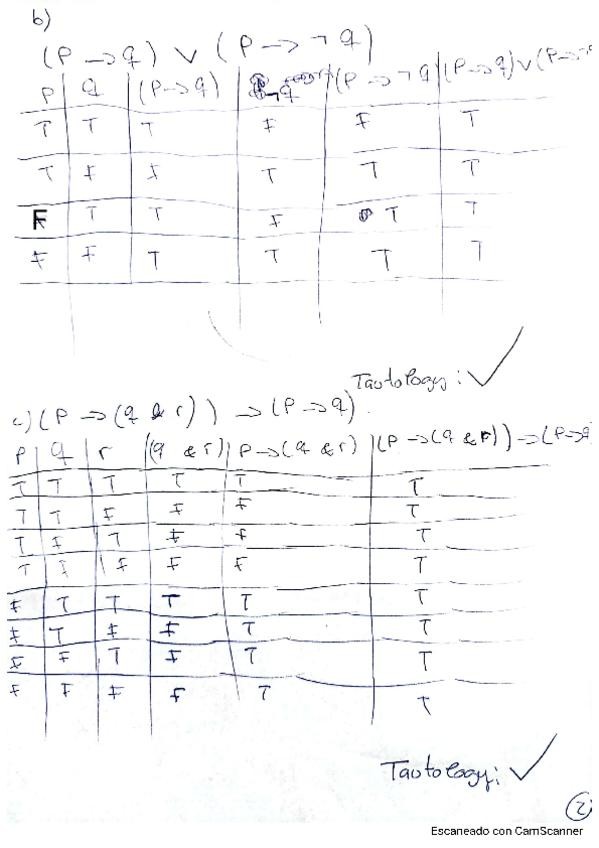 b)
(P → q) ∨ (P → ¬ q)
P q (P → q) ¬q (P → ¬ q) (P → q) ∨ (P → ¬
T T T F F T
T F F T T T
F T T F T T
F F T T T T
Tautology: ✓
c) (P → (q & r)) → (P → q).
P q r (q & r) P → (q & r) (P → (q & r)) → (P → q
T T T T T T
T T F F F T
T F T F F T
T F F F F T
F T T T T T
F T F F T T
F F T F T T
F F F F T T
Tautology: ✓
2
Escaneado con CamScanner